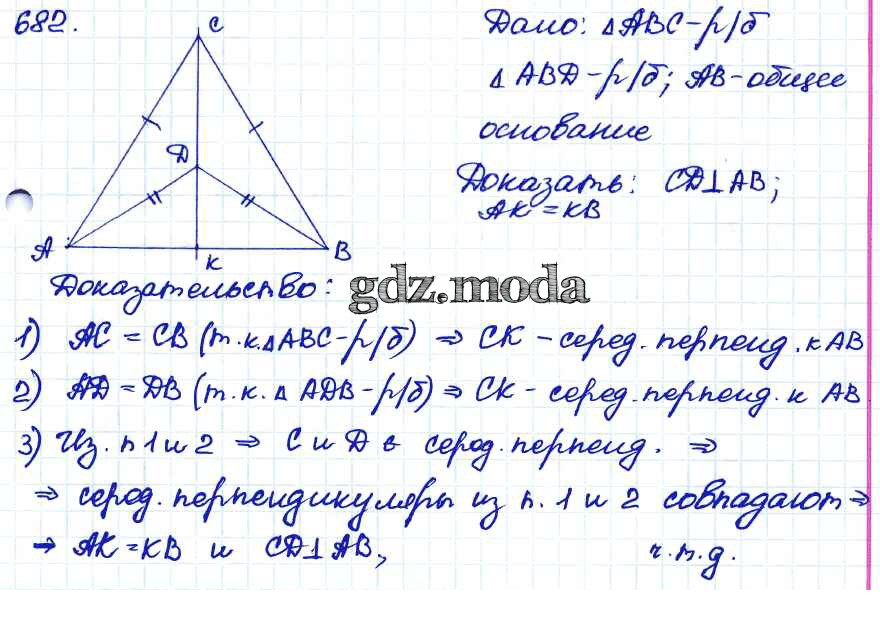 682.
C
Дано: △ABC-р/б
△ABD-р/б; AB-общее
основание
D
Доказать: CD⊥AB;
AK=KB
A
B
K
Доказательство:
gdz.moda
1) AC = CB (т.к.△ABC-р/б) ⇒ CK - серед. перпенд. к AB
2) AD = DB (т.к. △ ADB-р/б) ⇒ CK - серед. перпенд. к AB
3) Из. п 1 и 2 ⇒ C и D ∈ серод. перпенд. ⇒
⇒ серод. перпендикуляры из п. 1 и 2 совпадают ⇒
⇒ AK=KB и CD⊥AB, ч.т.д.